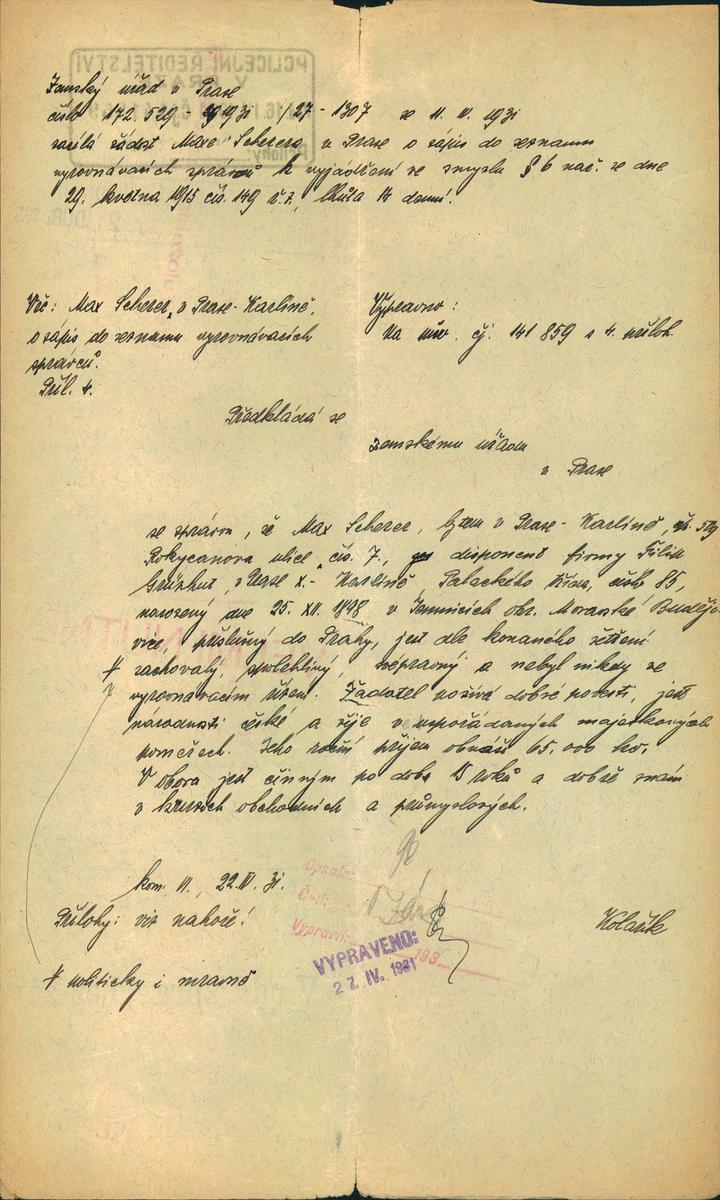 Zemský úřad v Praze
číslo 172.529 - 1931 /27 - 1307 ze 11. IV. 1931
zasílá žádost Maxe Scherera v Praze o zápis do seznamu
vyrovnávacích správců k vyjádření ve smyslu § 6 nař. ze dne
29. května 1915 čís. 149 ř. z., lhůta 14 denní.
Věc: Max Scherer, v Praze-Karlíně,
o zápis do seznamu vyrovnávacích
správců.
Příl. 4.
Výpravno:
Na čj. 141 859 s 4. příloh.
Předkládá se
zemskému úřadu
v Praze
se zprávou, že Max Scherer, bytem v Praze-Karlíně, čp. 579
Rokycanova ulice čís. 7., disponent firmy Filip
Grünhut, v Praze X.- Karlíně, Palackého třída, číslo 85,
narozený dne 25. XII. 1898 v Jemnicích okr. Moravské BuděJo-
vice, příslušný do Prahy, jest dle konaného šetření
+ zachovalý, spolehlivý, a nebyl nikdy ve
vyrovnávacím řízení. Žadatel požívá dobré pověsti, jest
národnosti české a žije v uspořádaných majetkových
poměrech. Jeho roční příjem obnáší 65.000 Kč.
V oboru jest činným po dobu 15 roků a dobře znám
v kruzích obchodních a průmyslových.
kom. III., 22.IV. 31.
Přílohy: viz nahoře!
Kolařík
Opsala:
Č.-l.:
Vypravil:
193
VYPRAVENO:
27. IV. 1931
+ politicky i mravně
POLICEJNÍ ŘEDITELSTVÍ
V PRAZE